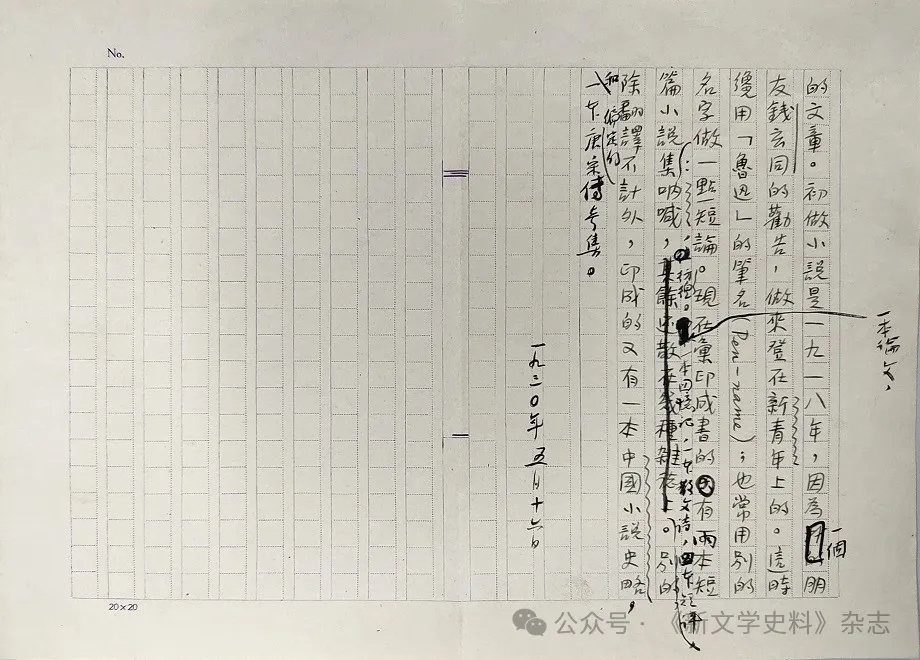 No.
一本論文，
的文章。初做小說是一九一八年，因為一個朋
友錢玄同的勸告，做來登在新青年上的。這時
纔用「魯迅」的筆名(Pen-name)；也常用別的
名字做一點短論。現在彙印成書的有兩本短
彷徨。一本回憶記，一本散文詩，四本短評。
篇小說集：吶喊，其餘還散在幾種雜誌上。別的
除翻譯不計外，印成的又有一本中國小說史略，
和一本編定的唐宋傳奇集。
一九三〇年五月十六日
20×20
公众号·《新文学史料》杂志